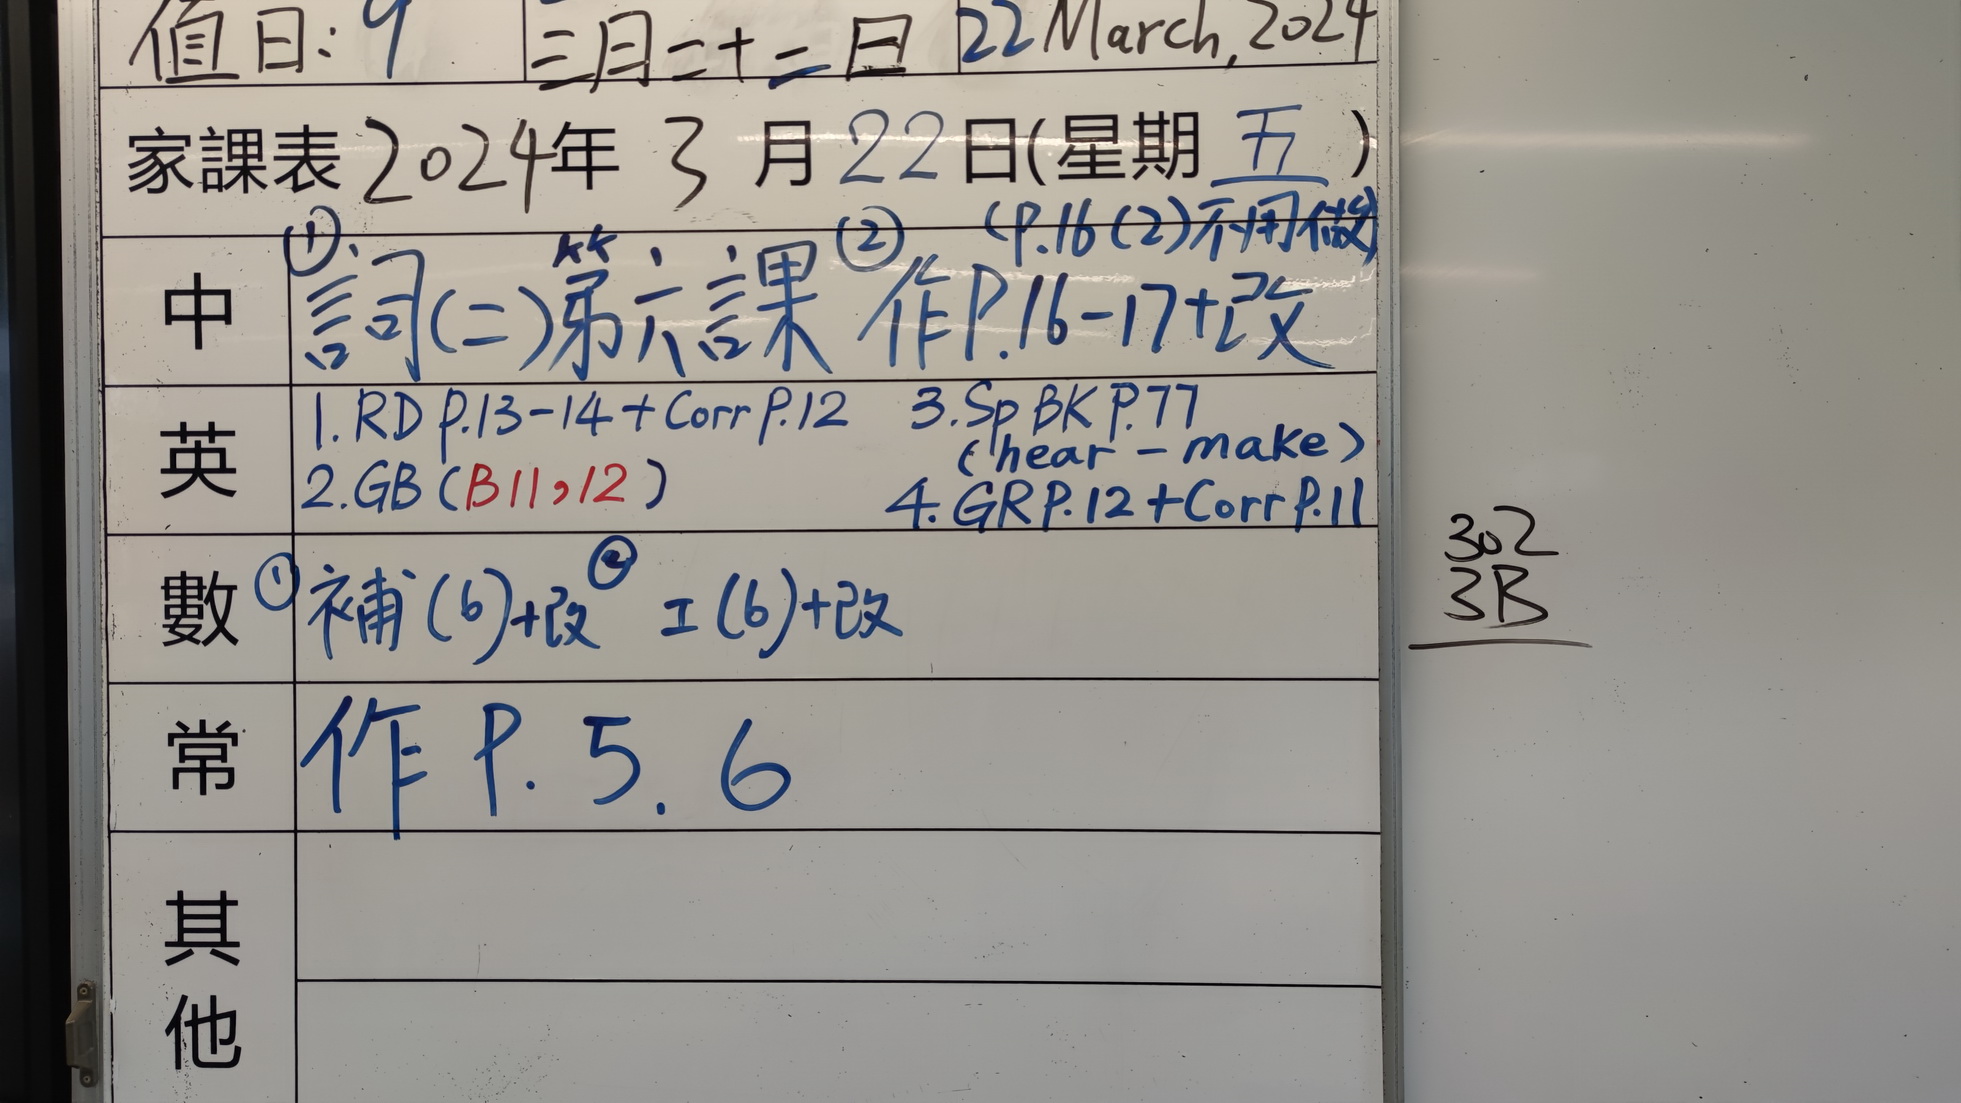 值日: 9 三月二十二日 22 March, 2024
家課表 2024年 3 月 22 日(星期 五 )
(P.16(2)不用做)
中 ①詞(二)第六課 ②作P.16-17+改
英 1. RD P.13-14 + Corr P.12 3. Sp BK P.77
(hear - make)
2. GB (B11,12) 4. GR P.12 + Corr P.11
數 ①補(6)+改 ② 工(6)+改
常 作 P. 5. 6
其他
302
3B